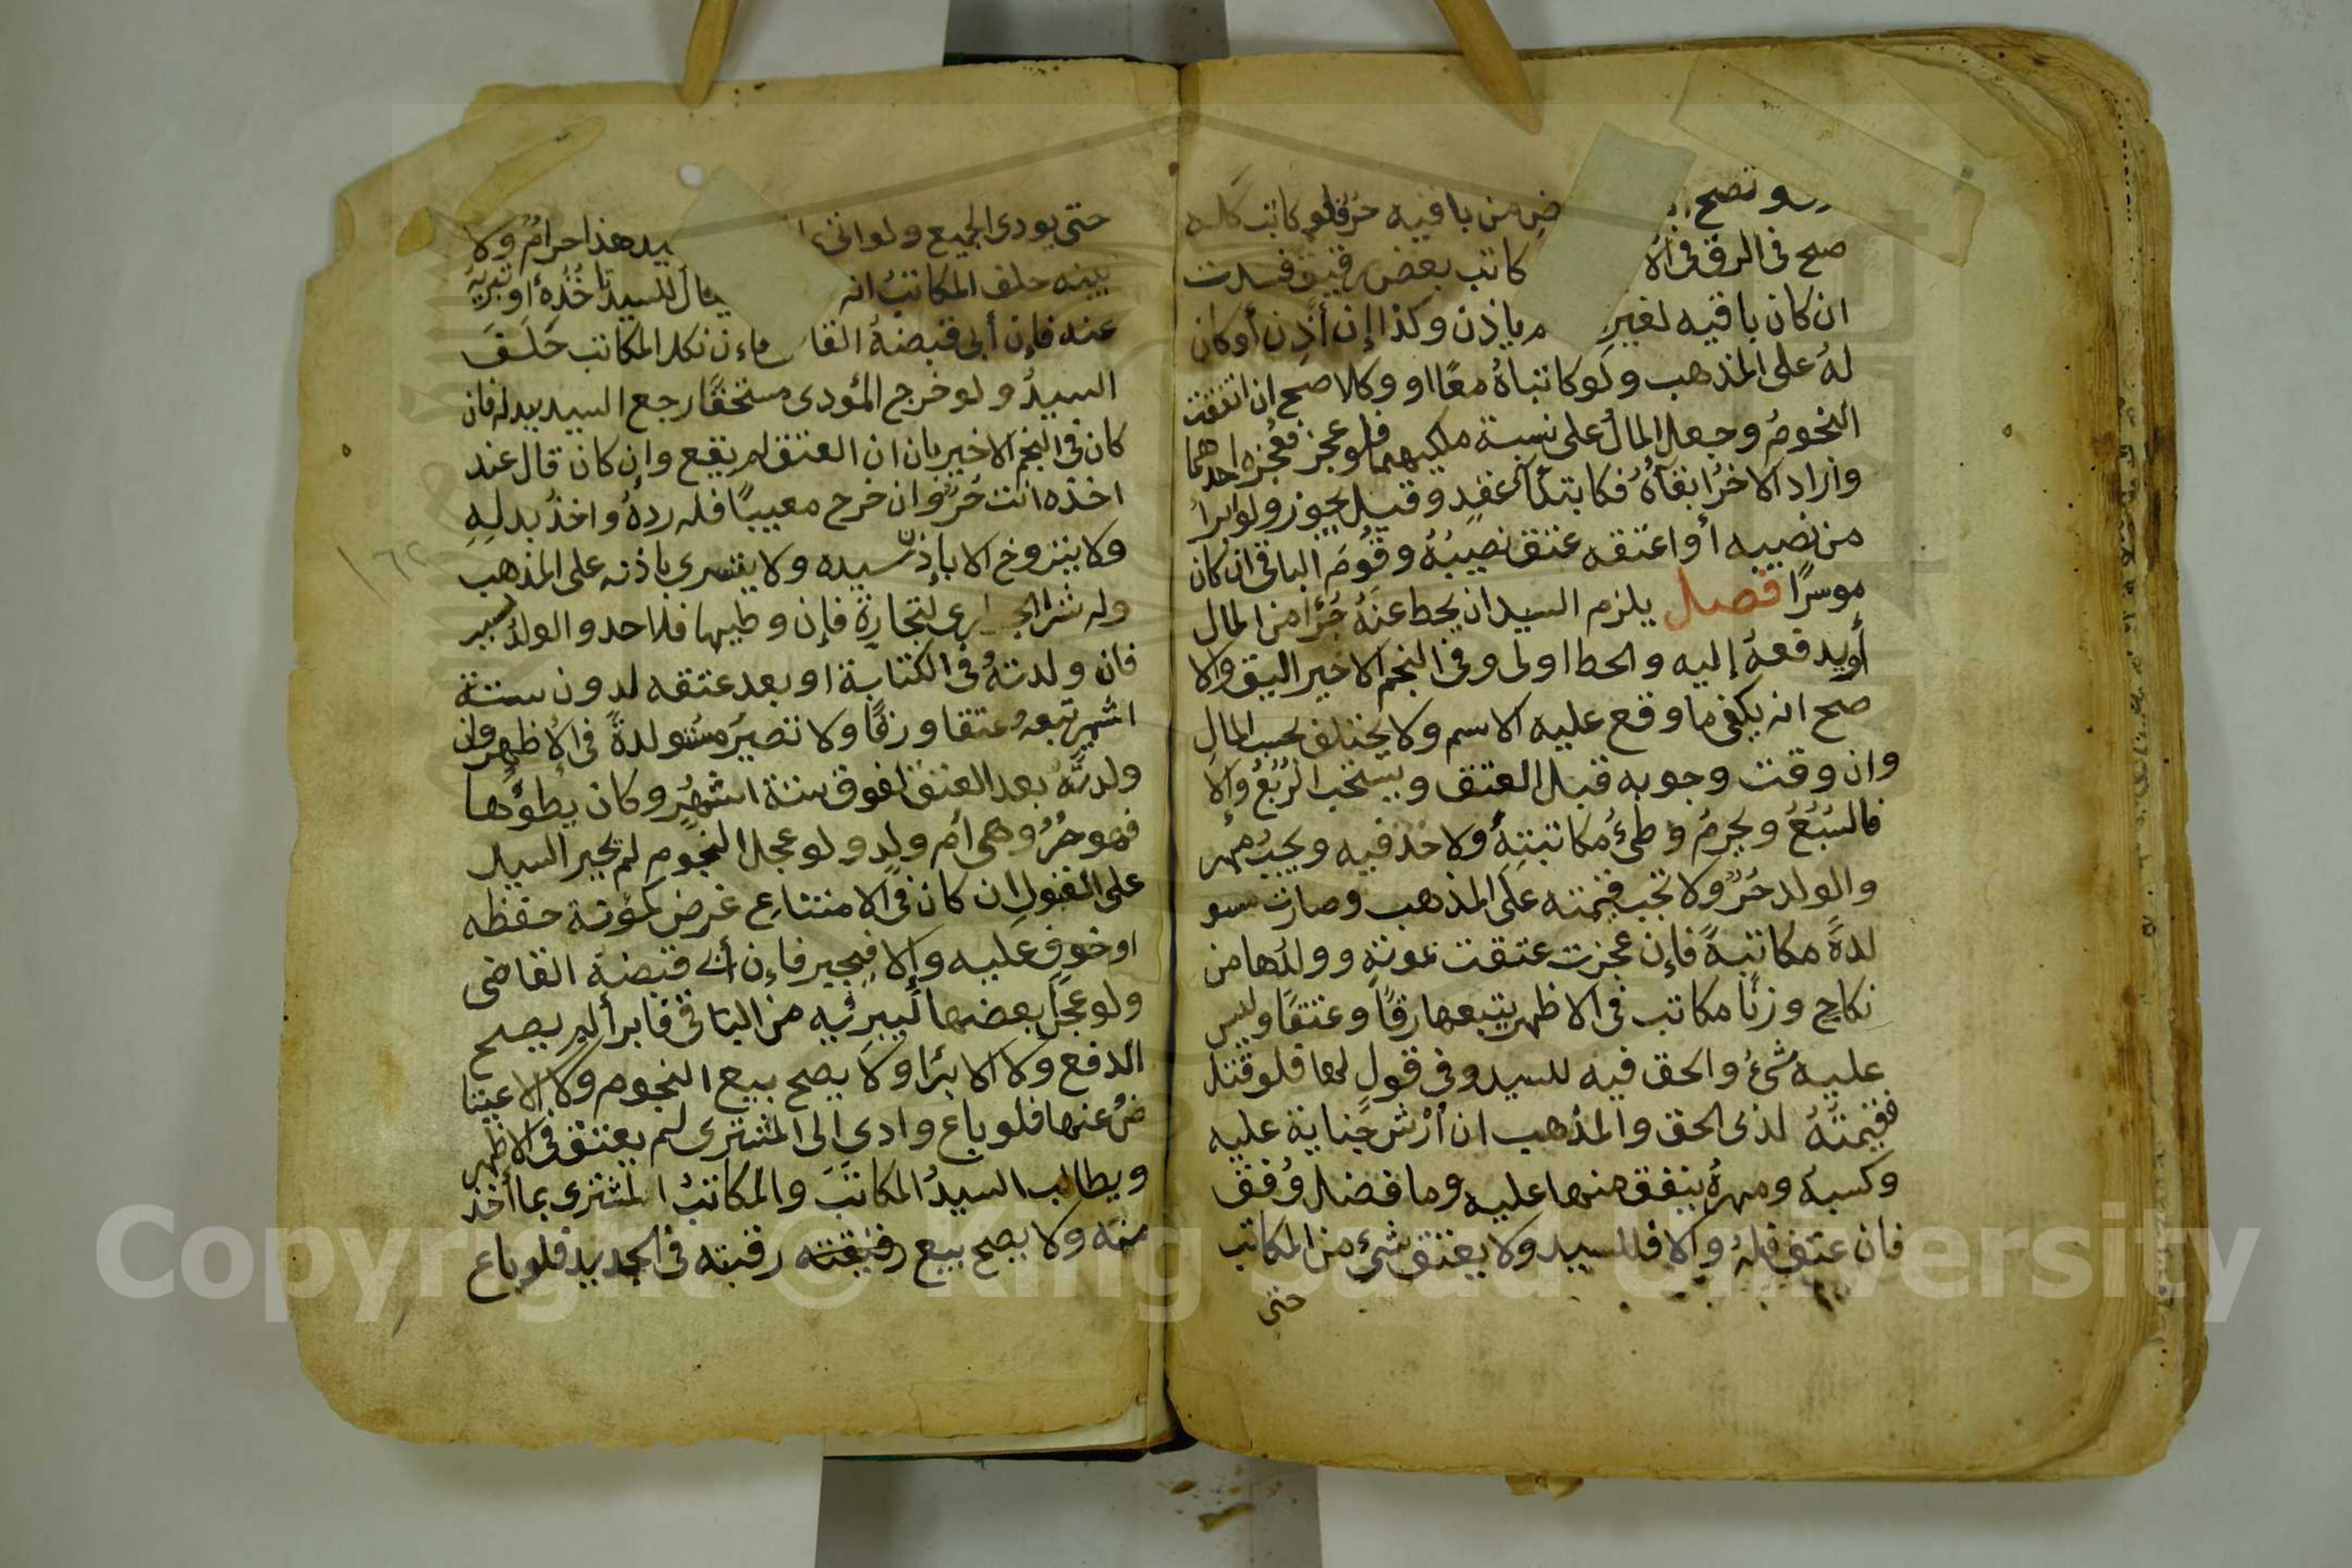 وتصح من باقيه حر فلو كاتب كله
صح في الرق في الا كاتب بعض رقيق فسدت
ان كان باقيه لغير ياذن وكذا إن أذن أو كان
لهُ على المذهب ولو كاتباهُ معًا او وكلا صح ان اتفقت
النجومُ وجعل المالُ على نسبة ملكيهما فلو عجز فعجزه احدهما
واراد الاخرُ ابقاهُ فكابتدا عقدٍ وقيل يجوز ولو ابرأ
من نصيبه أو اعتقه عتق نصيبهُ وقُوّمَ الباقي ان كان
موسرًا فصل يلزم السيد ان يحط عنهُ جزًا من المال
أويدفعهُ إليه والحط اولى وفي النجم الاخير اليق والا
صح انه يكفي ما وقع عليه الاسم ولا يختلف بحسب المال
وان وقت وجوبه قبل العتق ويستحب الرُبُعُ وإلا
فالسُبُعُ ويحرمُ وطئُ مكاتبتِهِ ولا حد فيه ويجبُ مهر
والولد حُرٌّ ولا تجب قيمته على المذهب وصارت مستو
لدةً مكاتبةً فإن عجزت عتقت بموتهِ وولدُها من
نكاحٍ وزنًا مكاتب في الاظهر يتبعها رقًا وعتقًا وليس
عليه شئُ والحق فيه للسيد وفي قولٍ لها فلو قتل
فقيمتهُ لذي الحق والمذهب ان أرْش جناية عليه
وكسبهُ ومهرهُ ينفق منها عليه وما فضل وُقف
فان عتق فلهُ والا فللسيد ولا يعتق شئ من المكاتب
حتى
حتى يودى الجميع ولو اتى يد هذا حرامٌ ولا
بينه حلف المكاتبُ انه يقال للسيد تاخُذُهُ أو تبريهُ
عنه فإن أبى قبضهُ القا فإن نكل المكاتب حَلَفَ
السيدُ ولو خرج المؤدى مستحقًا رجع السيد ببدله فان
كان في النجم الاخير بان ان العتق لم يقع وإن كان قال عند
اخذه انت حُرٌّ وان خرج معيبًا فله ردهُ واخذُ بدلِهِ
ولا يتزوج الا بإذن سيده ولا يتسرى باذنه على المذهب
وله شرا الجوارى لتجارةٍ فإن وطيها فلا حد والولدُ نسيب
فان ولدتهُ في الكتابة او بعد عتقه لدون ستة
اشهر تبعهُ عتقا ورقًا ولا تصيرُ مستولدةً في الاظهر وان
ولدتهُ بعد العتق لفوق ستة اشهُرٍ وكان يطؤُها
فهو حُرٌّ وهى أم ولدٍ ولو عجل النجوم لم يجبر السيد
على القبول إن كان في الامتناع غرض كمؤنة حفظه
او خوفٍ عليه وإلا فيجبر فإن أبى قبضهُ القاضى
ولو عَجل بعضها ليبرئه من الباقي فابرأ لم يصح
الدفع ولا الابرًا ولا يصح بيع النجوم ولا الاعتيا
ضُ عنها فلو باع وادى إلى المشترى لم يعتق في الاظهر
ويطالب السيدُ المكاتبَ والمكاتبُ المشترى بما أخذ
منه ولا يصح بيع رقبته في الجديد فلو باع
١٦٢
Copyright © King Saud University